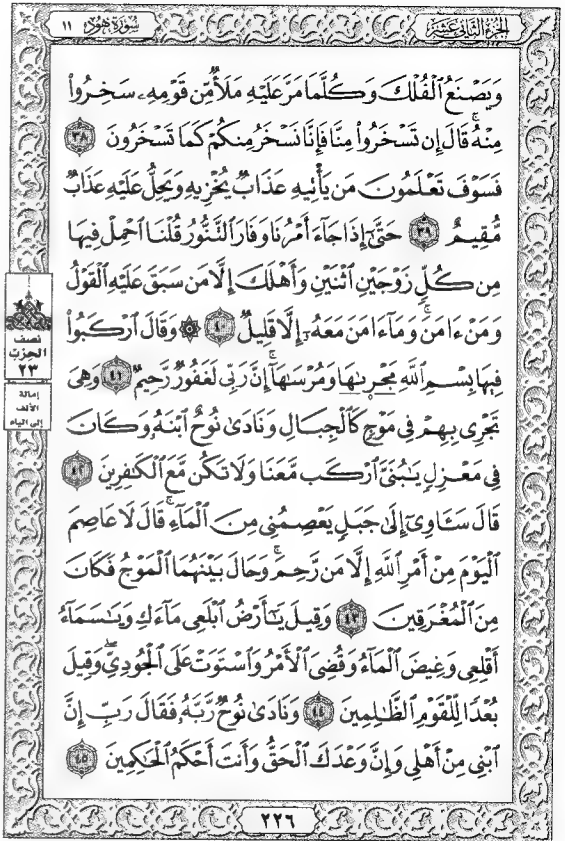 الجزء الثاني عشر
سورة هود ١١
وَيَصْنَعُ ٱلْفُلْكَ وَكُلَّمَا مَرَّ عَلَيْهِ مَلَأٌ مِّن قَوْمِهِۦ سَخِرُوا۟
مِنْهُ ۚ قَالَ إِن تَسْخَرُوا۟ مِنَّا فَإِنَّا نَسْخَرُ مِنكُمْ كَمَا تَسْخَرُونَ ٣٨
فَسَوْفَ تَعْلَمُونَ مَن يَأْتِيهِ عَذَابٌ يُخْزِيهِ وَيَحِلُّ عَلَيْهِ عَذَابٌ
مُّقِيمٌ ٣٩ حَتَّىٰٓ إِذَا جَآءَ أَمْرُنَا وَفَارَ ٱلتَّنُّورُ قُلْنَا ٱحْمِلْ فِيهَا
مِن كُلٍّ زَوْجَيْنِ ٱثْنَيْنِ وَأَهْلَكَ إِلَّا مَن سَبَقَ عَلَيْهِ ٱلْقَوْلُ
وَمَنْ ءَامَنَ ۚ وَمَآ ءَامَنَ مَعَهُۥٓ إِلَّا قَلِيلٌ ٤٠ ۞ وَقَالَ ٱرْكَبُوا۟
فِيهَا بِسْمِ ٱللَّهِ مَجْر۪ىٰهَا وَمُرْسَىٰهَآ ۚ إِنَّ رَبِّى لَغَفُورٌ رَّحِيمٌ ٤١ وَهِىَ
تَجْرِى بِهِمْ فِى مَوْجٍ كَٱلْجِبَالِ وَنَادَىٰ نُوحٌ ٱبْنَهُۥ وَكَانَ
فِى مَعْزِلٍ يَٰبُنَىَّ ٱرْكَب مَّعَنَا وَلَا تَكُن مَّعَ ٱلْكَٰفِرِينَ ٤٢
قَالَ سَـَٔاوِىٓ إِلَىٰ جَبَلٍ يَعْصِمُنِى مِنَ ٱلْمَآءِ ۚ قَالَ لَا عَاصِمَ
ٱلْيَوْمَ مِنْ أَمْرِ ٱللَّهِ إِلَّا مَن رَّحِمَ ۚ وَحَالَ بَيْنَهُمَا ٱلْمَوْجُ فَكَانَ
مِنَ ٱلْمُغْرَقِينَ ٤٣ وَقِيلَ يَٰٓأَرْضُ ٱبْلَعِى مَآءَكِ وَيَٰسَمَآءُ
أَقْلِعِى وَغِيضَ ٱلْمَآءُ وَقُضِىَ ٱلْأَمْرُ وَٱسْتَوَتْ عَلَى ٱلْجُودِىِّ ۖ وَقِيلَ
بُعْدًا لِّلْقَوْمِ ٱلظَّٰلِمِينَ ٤٤ وَنَادَىٰ نُوحٌ رَّبَّهُۥ فَقَالَ رَبِّ إِنَّ
ٱبْنِى مِنْ أَهْلِى وَإِنَّ وَعْدَكَ ٱلْحَقُّ وَأَنتَ أَحْكَمُ ٱلْحَٰكِمِينَ ٤٥
نصف
الحزب
٢٣
إمالة
الألف
إلى الياء
٢٢٦